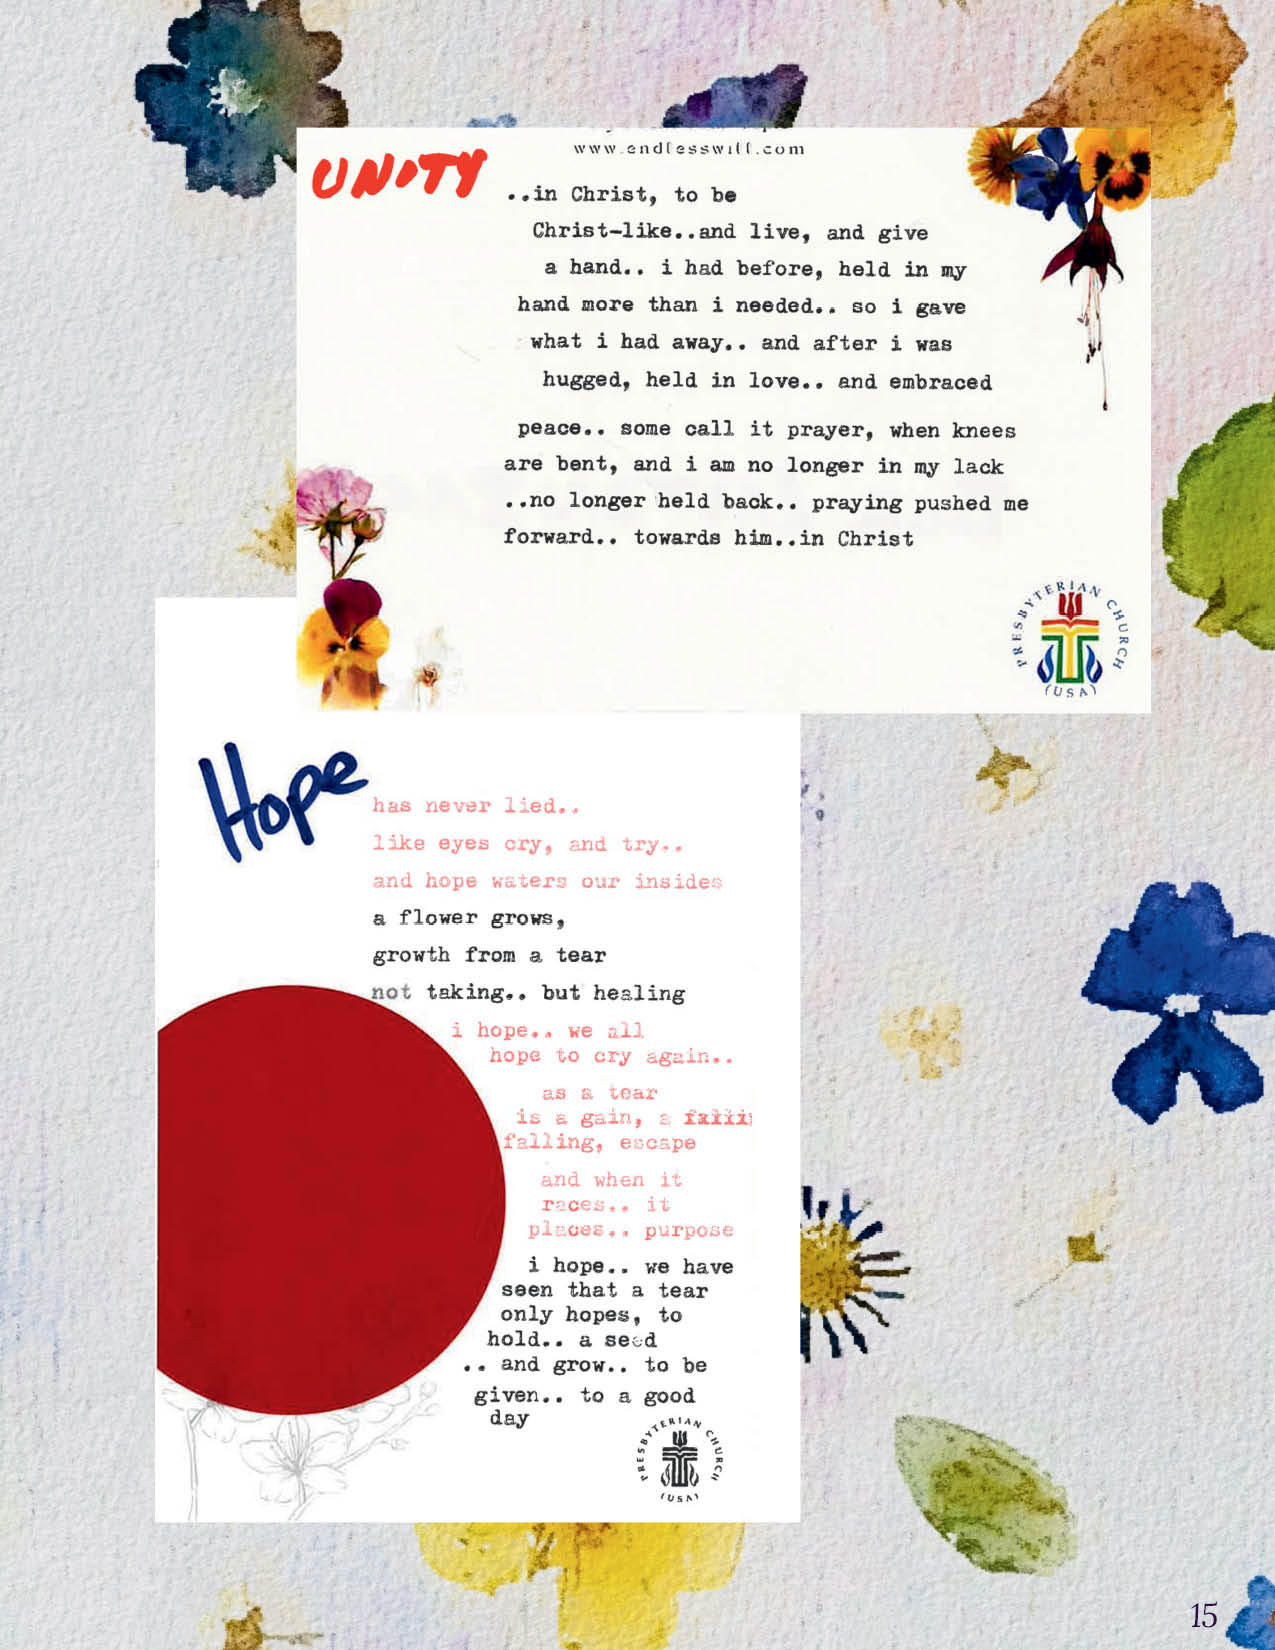 www.endlesswill.com
UNITY
..in Christ, to be
Christ-like..and live, and give
a hand.. i had before, held in my
hand more than i needed.. so i gave
what i had away.. and after i was
hugged, held in love.. and embraced
peace.. some call it prayer, when knees
are bent, and i am no longer in my lack
..no longer held back.. praying pushed me
forward.. towards him..in Christ
PRESBYTERIAN CHURCH
(USA)
Hope
has never lied..
like eyes cry, and try..
and hope waters our insides
a flower grows,
growth from a tear
not taking.. but healing
i hope.. we all
hope to cry again..
as a tear
is a gain, a
falling, escape
and when it
races.. it
places.. purpose
i hope.. we have
seen that a tear
only hopes, to
hold.. a seed
.. and grow.. to be
given.. to a good
day
PRESBYTERIAN CHURCH
(USA)
15